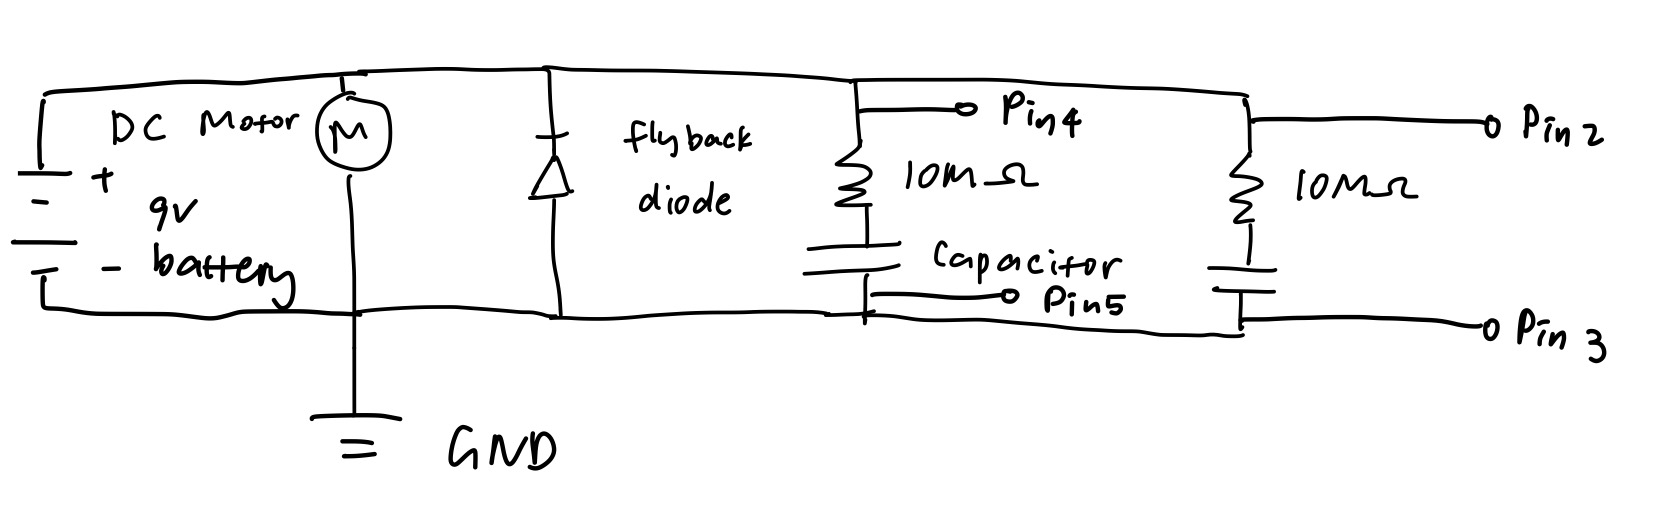 DC Motor
M
+
9v
battery
-
flyback
diode
Pin4
10MΩ
Capacitor
Pin5
Pin2
10MΩ
Pin 3
GND